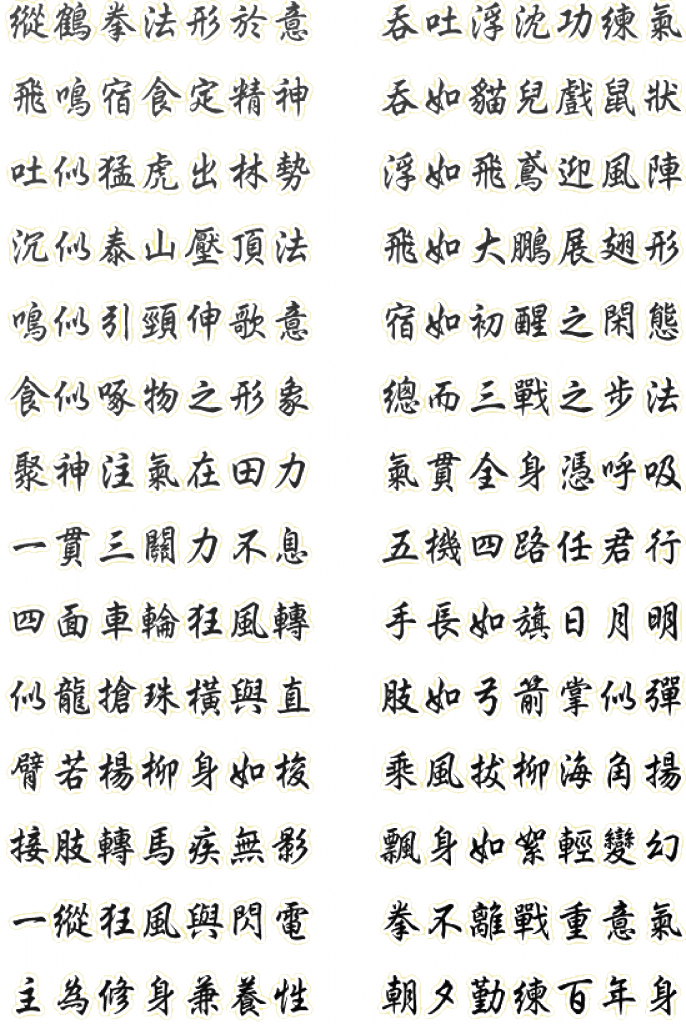 縱鶴拳法形於意 吞吐浮沈功練氣
飛鳴宿食定精神 吞如貓兒戲鼠狀
吐似猛虎出林勢 浮如飛鳶迎風陣
沉似泰山壓頂法 飛如大鵬展翅形
鳴似引頸伸歌意 宿如初醒之閑態
食似啄物之形象 總而三戰之步法
聚神注氣在田力 氣貫全身憑呼吸
一貫三關力不息 五機四路任君行
四面車輪狂風轉 手長如旗日月明
似龍搶珠橫與直 肢如弓箭掌似彈
臂若楊柳身如梭 乘風拔柳海角揚
接肢轉馬疾無影 飄身如絮輕變幻
一縱狂風與閃電 拳不離戰重意氣
主為修身兼養性 朝夕勤練百年身